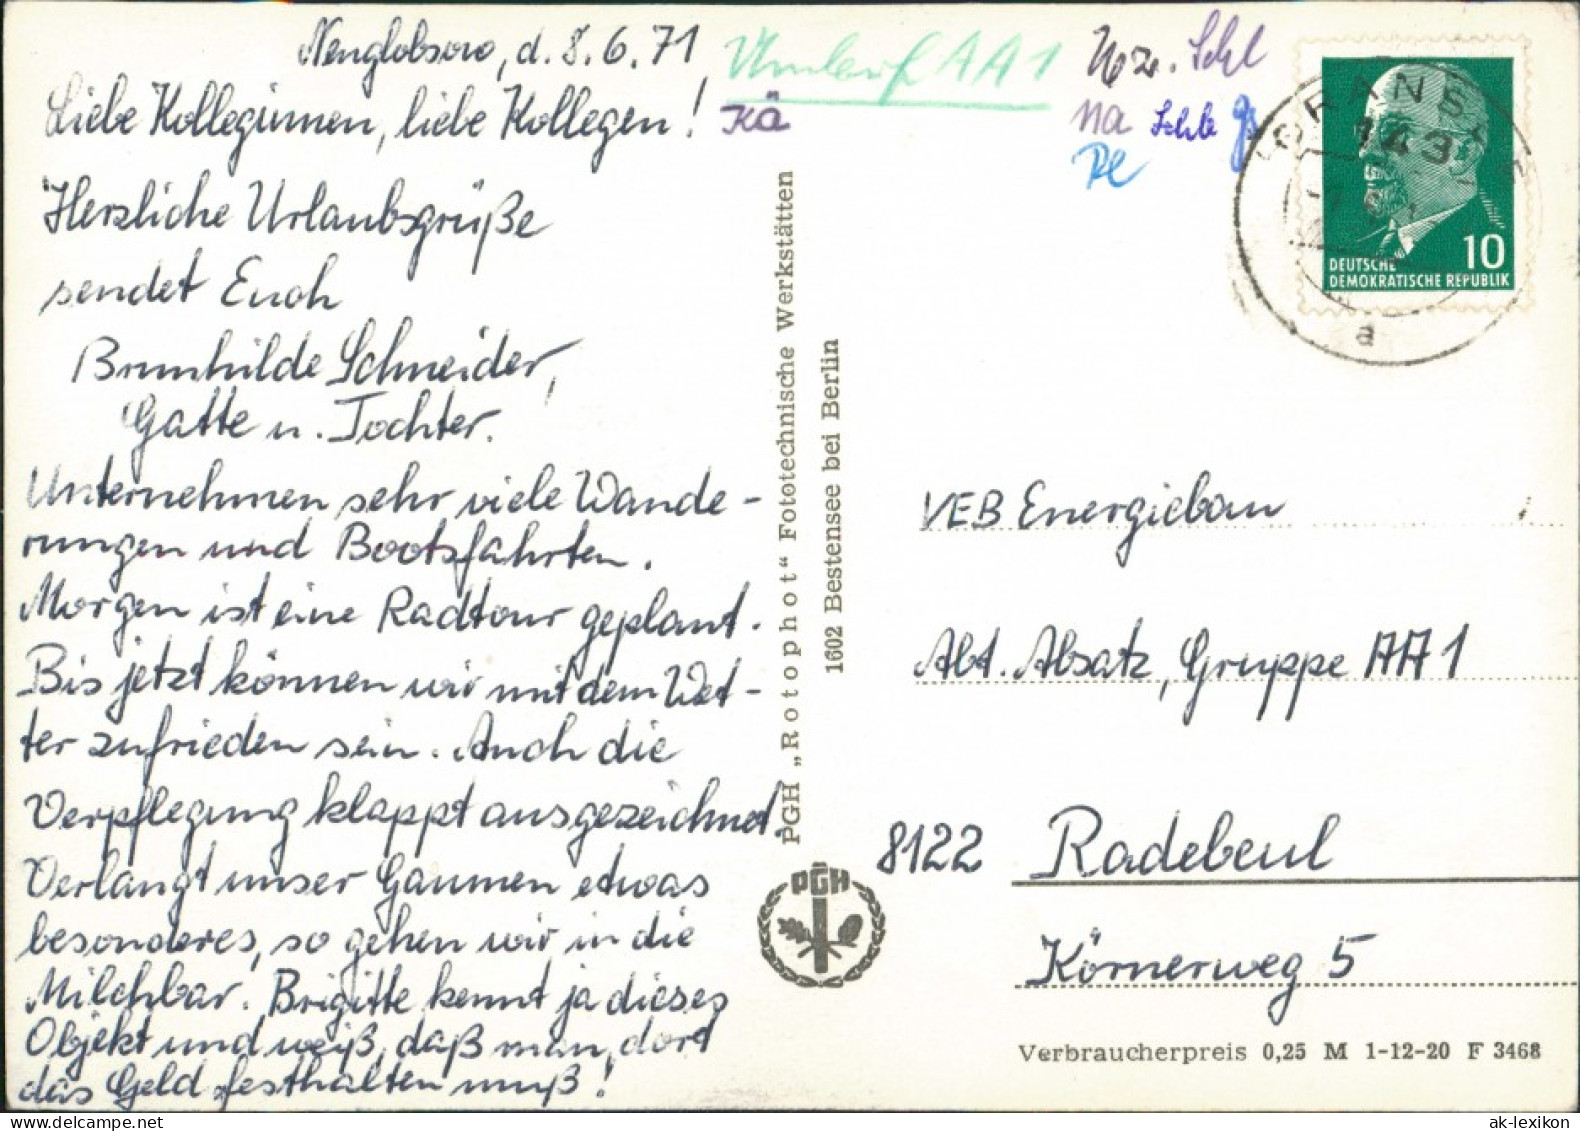 Neuglobsow, d. 8.6.71
Liebe Kolleginnen, liebe Kollegen!
Herzliche Urlaubsgrüße
sendet Euch
Brunhilde Schneider,
Gatte u. Tochter.
Unternehmen sehr viele Wande-
rungen und Bootsfahrten.
Morgen ist eine Radtour geplant.
Bis jetzt können wir mit dem Wet-
ter zufrieden sein. Auch die
Verpflegung klappt ausgezeichnet.
Verlangt unser Gaumen etwas
besonderes, so gehen wir in die
Milchbar. Brigitte kennt ja dieses
Objekt und weiß, daß man dort
das Geld festhalten muß!
Umlauf AA1
Kä
na
PGH „Rotophot“ Fototechnische Werkstätten
1602 Bestensee bei Berlin
PGH
143
a
10
DEUTSCHE
DEMOKRATISCHE REPUBLIK
VEB Energiebau
Abt. Absatz, Gruppe AA1
8122 Radebeul
Körnerweg 5
Verbraucherpreis 0,25 M 1-12-20 F 3468
ak-lexikon